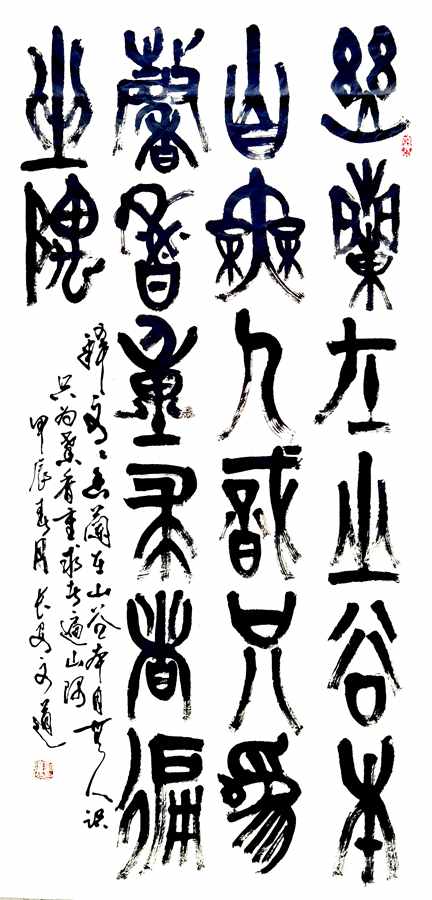 幽蘭在山谷本
自無人識只為
馨香重求者徧
山隅
释文：幽蘭在山谷本自無人识
只为馨香重求者遍山隅
甲辰春月長安文道